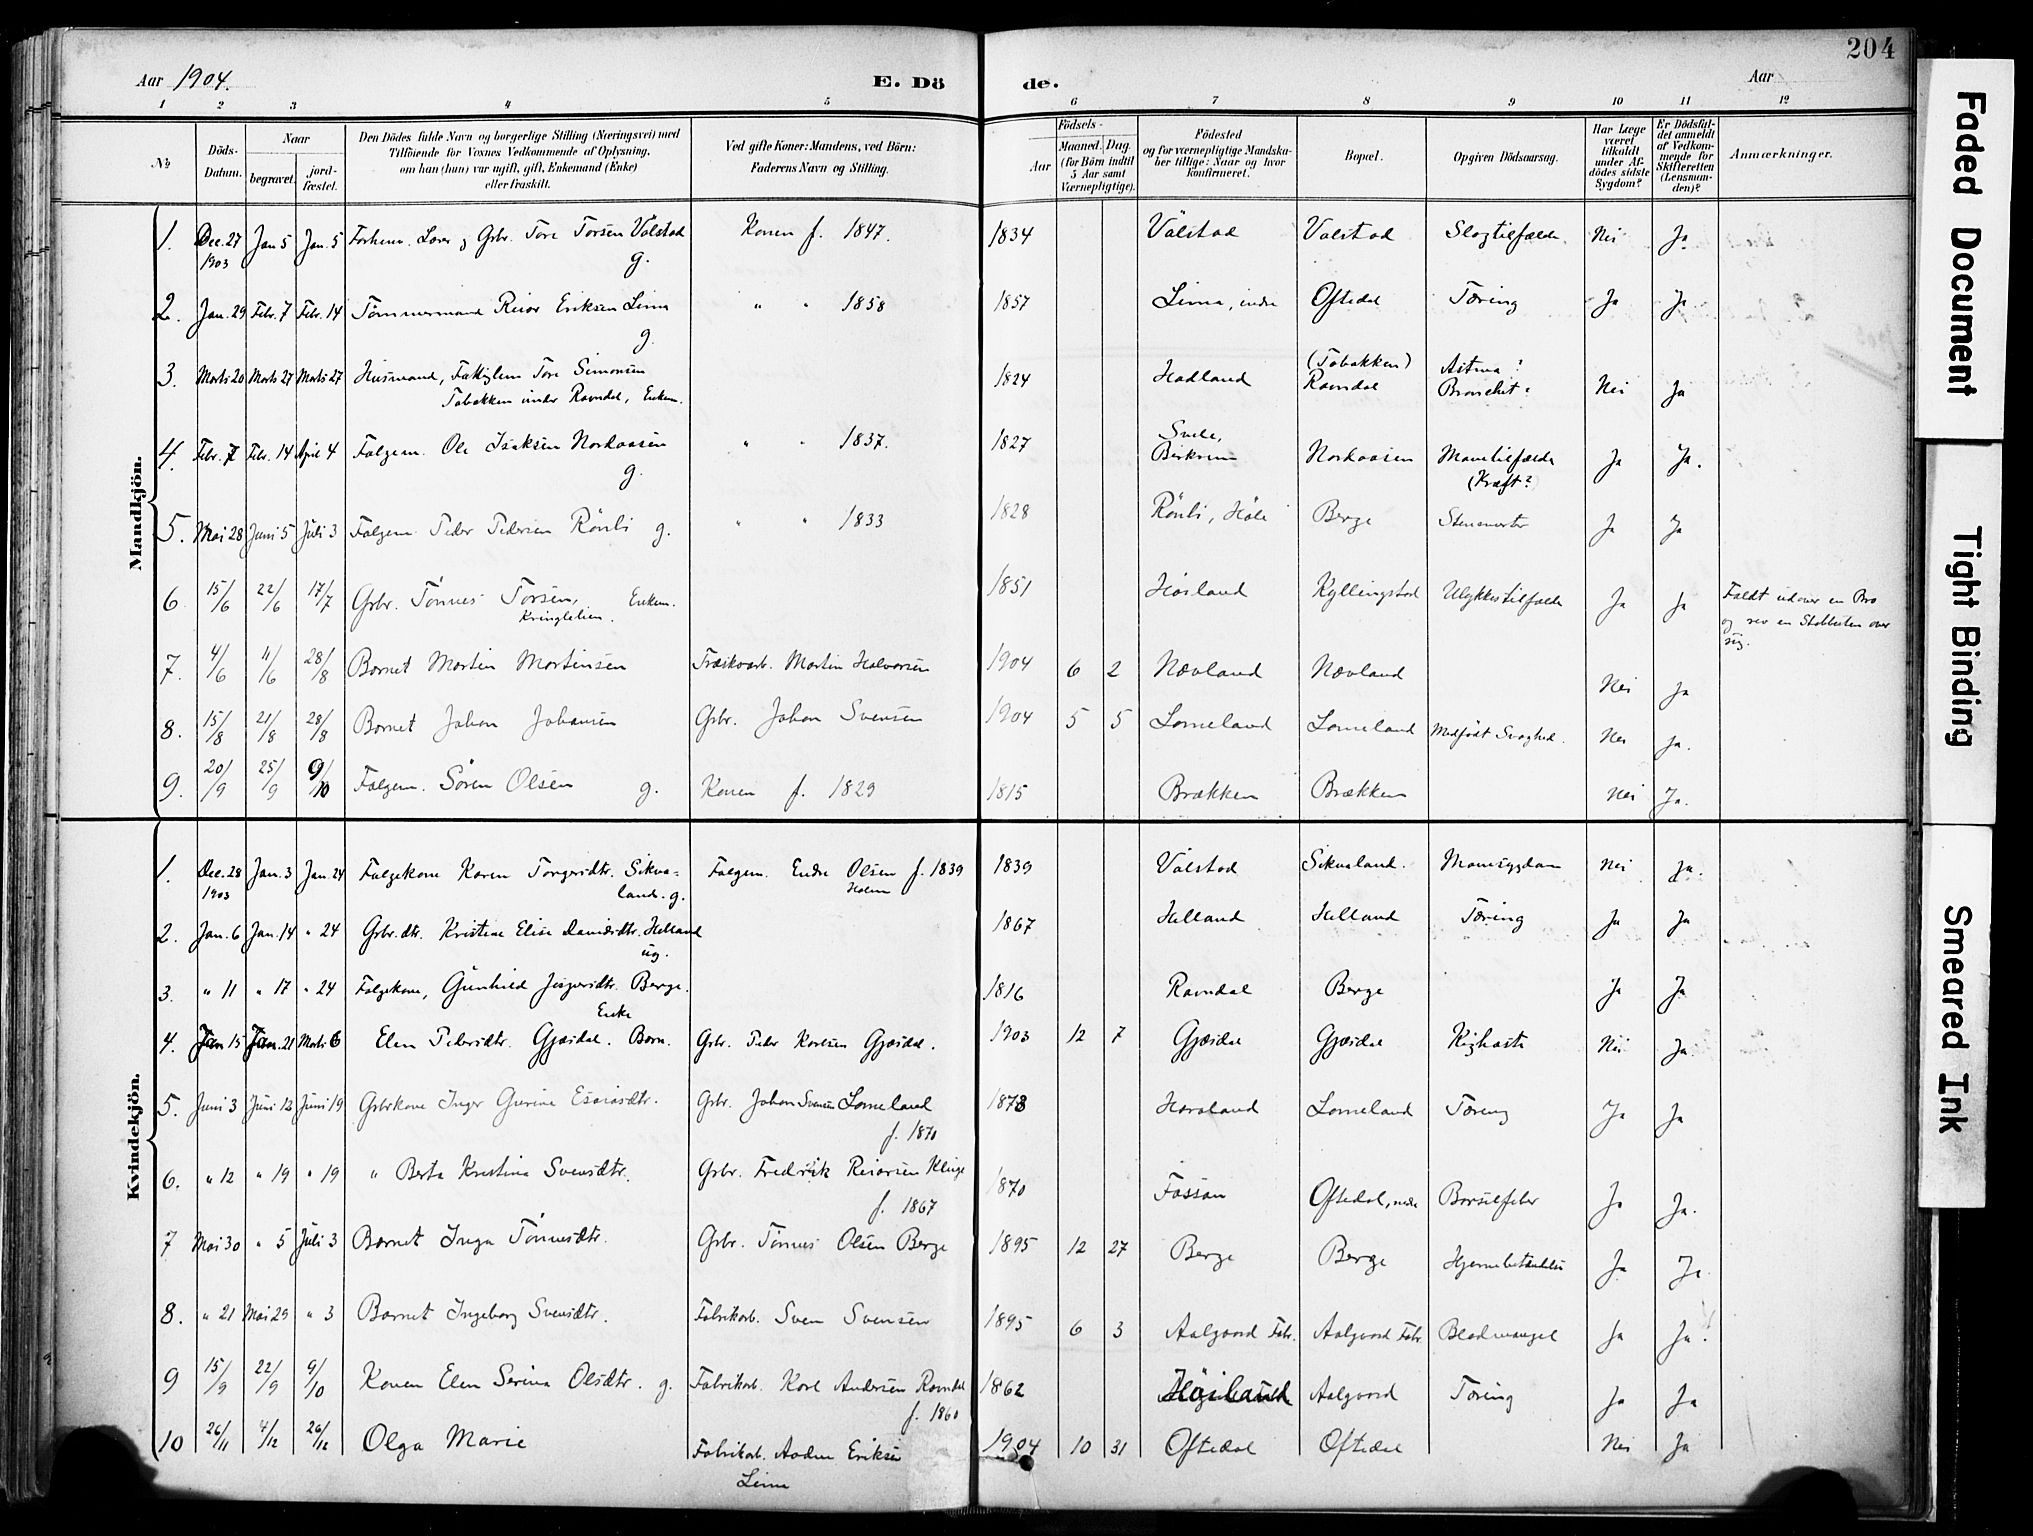 204
Aar 1904.
E. Dö
de.
Aar
1 2 3 4 5 6 7 8 9 10 11 12
№
Döds-Datum.
Naar
begravet.
jord-fæstet.
Den Dödes fulde Navn og borgerlige Stilling (Næringsvei) med
Tilföiende for Voxnes Vedkommende af Oplysning,
om han (hun) var ugift, gift, Enkemand (Enke)
eller fraskilt.
Ved gifte Koner: Mandens, ved Börn:
Faderens Navn og Stilling.
Födsels-
Aar
Maaned. Dag.
(for Börn indtil
5 Aar samt
Værnepligtige).
Födested
og for værnepligtige Mandska-
ber tillige: Naar og hvor
konfirmeret.
Bopæl.
Opgiven Dödsaarsag.
Har Læge
været
tilkaldt
under Af-
dödes sidste
Sygdom?
Er Dödsfal-
det anmeldt
af Vedkom-
mende for
Skifteretten
(Lensman-
den)?
Anmærkninger.
Mandkjön.
1. Dec. 27 1903 Jan 5 Jan. 5 Forhenv. Lærer og Grbr. Tore Torsen Vålstad g. Konen f. 1847. 1834 Vålstad Valstad Slagtilfælde Nei Ja
2. Jan. 29 Febr. 7 Febr. 14 Tømmermand Reier Eriksen Lima g. " " 1858 1857 Lima, indre Oftedal Tæring Ja Ja
3. Marts 20 Marts 27 Marts 27 Husmand, Fattiglem Tore Simonsen Tobakken under Ravndal, Enkem. 1824 Hadland (Tobakken) Ravndal Astma? Bronchit? Nei Ja
4. Febr. 7 Febr. 14 April 4 Følgem. Ole Isaksen Norkaasen g. " " 1837. 1827 Svele, Birkrem Norkaasen Mavetilfælde (Kræft?) Ja Ja.
5. Mai 28 Juni 5 Juli 3 Følgem. Peder Pedersen Rönli g. " " 1833 1828 Rönli, Höle Berge Ja Ja
6 15/6 22/6 17/7 Grbr. Tönnes Torsen, Kringlelien. Enkem. 1851 Høiland Kyllingstad Ulykkestilfælde Ja Ja Faldt udover en Bro og rev en Stabbesten over sig.
7. 4/6 11/6 28/8 Barnet Martin Martinsen Træskoarb. Martin Halvorsen 1904 6 2 Nævland Nævland Nei Ja
8. 15/8 21/8 28/8 Barnet Johan Johansen Grbr. Johan Svensen 1904 5 5 Lomeland Lomeland Medfødt Svaghed. Nei Ja.
9. 20/9 25/9 9/10 Følgem. Sören Olsen g. Konen f. 1829 1815 Brækken Brækken Nei Ja.
Kvindekjön.
1. Dec. 28 1903 Jan. 3 Jan. 24 Følgekone Karen Torgersdtr. Sikva-land. g. Følgem. Endre Olsen Holen f. 1839 1839 Vålstad Sikvaland. Mavesygdom Nei Ja.
2. Jan. 6 Jan. 14 " 24 Grbr.dtr. Kristine Elise Danielsdtr. Helland ug. 1867 Helland Helland Tæring Ja Ja
3. " 11 " 17 " 24 Følgekone, Gunhild Jespersdtr. Berge. Enke 1816 Ravndal Berge Ja Ja
4. Jan 15 Jan. 21 Marts 6 Elen Pedersdtr. Gjæsdal. Barn. Grbr. Peder Karlsen Gjæsdal. 1903 12 7 Gjæsdal Gjæsdal Kighoste Nei Ja.
5. Juni 3 Juni 12 Juni 19 Grbrkone Inger Gurine Esaiasdtr. Grbr. Johan Svensen Lomeland f. 1870 1878 Haraland Lomeland Tæring Ja Ja
6. " 12 " 19 " 19 " Berta Kristina Svensdtr. Grbr. Fredrik Reiersen Kluge f. 1867 1870 Fossan Oftedal, nedre Barselfeber Ja Ja.
7 Mai 30 " 5 Juli 3 Barnet Inga Tönnesdtr. Grbr. Tönnes Olsen Berge 1895 12 27 Berge Berge Hjernebetændelse Ja Ja
8. " 21 Mai 29 " 3 Barnet Ingeborg Svensdtr. Fabrikarb. Sven Svensen 1895 6 3 Aalgaard Fabr. Aalgaard Fabr. Blodmangel Ja Ja.
9 15/9 22/9 9/10 Konen Elen Serina Olsdtr. g. Fabrikarb. Karl Andersen Ravndal f. 1860 1862 Høiland Aalgaard Tæring Ja Ja
10 26/11 4/12 26/12 Olga Marie Fabrikarb. Aadne Eriksen Lima 1904 10 31 Oftedal Oftedal Nei Ja
Faded Document
Tight Binding
Smeared Ink